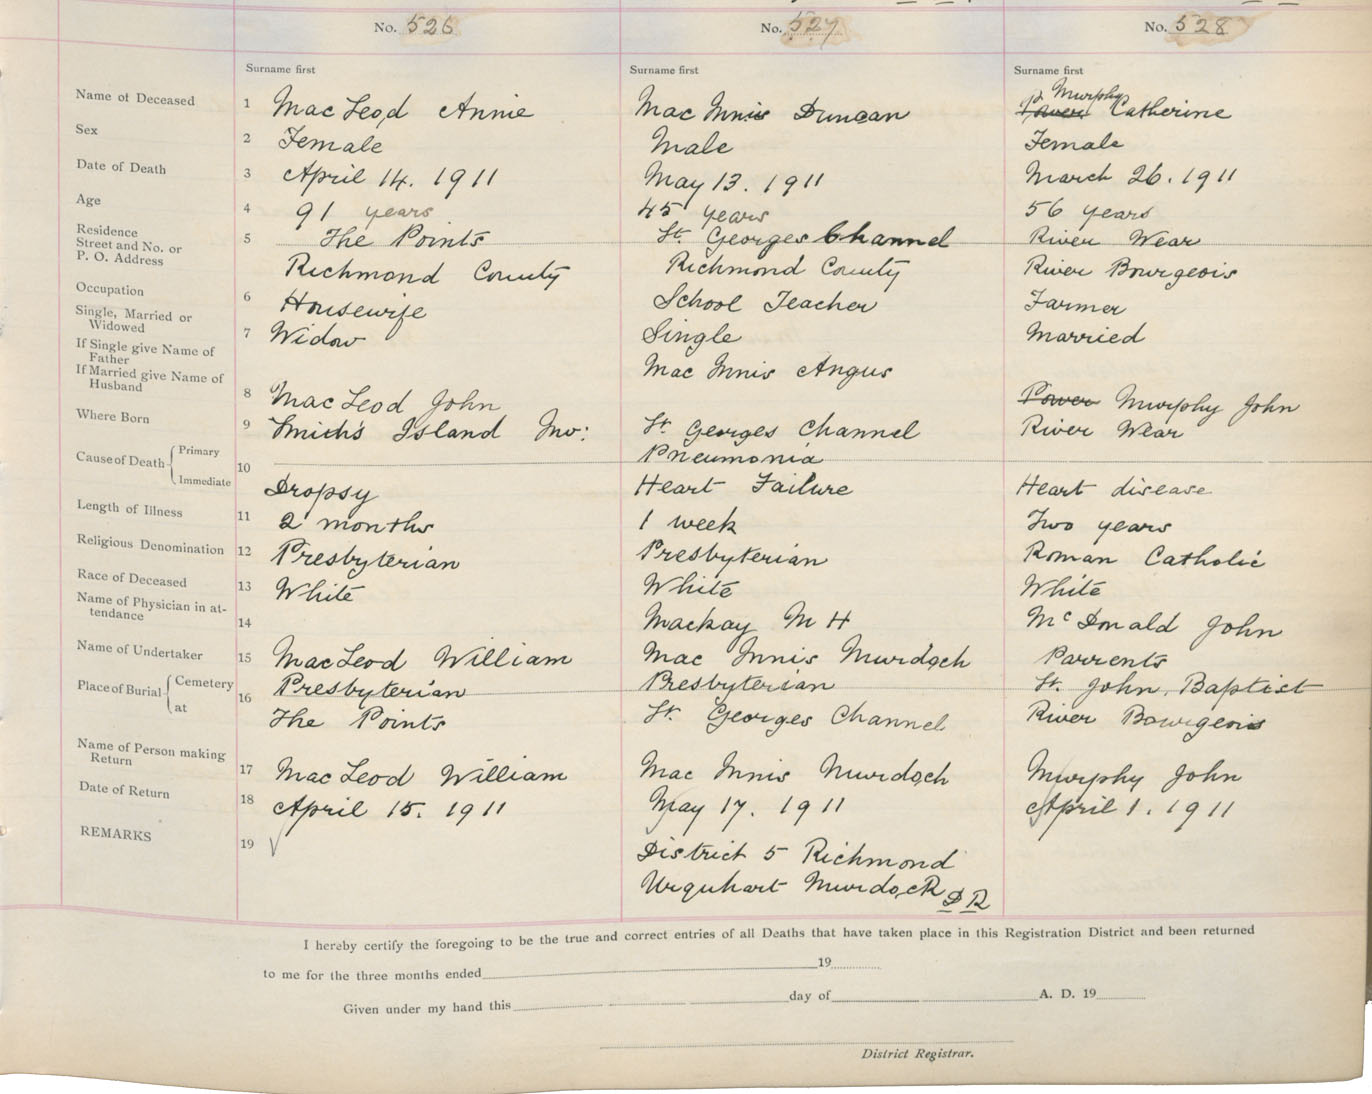 No. 526 No. 527 No. 528
Surname first Surname first Surname first
Murphy
Name of Deceased 1 Mac Leod Annie Mac Innis Duncan Power Catherine
Sex 2 Female Male Female
Date of Death 3 April 14. 1911 May 13. 1911 March 26. 1911
Age 4 91 years 45 years 56 years
Residence
Street and No. or 5 The Points St. Georges Channel River Wear
P. O. Address Richmond County Richmond County River Bourgeois
Occupation 6 Housewife School Teacher Farmer
Single, Married or
Widowed 7 Widow Single Married
If Single give Name of
Father Mac Innis Angus
If Married give Name of
Husband 8 Mac Leod John Power Murphy John
Where Born 9 Smith's Island Inv: St. Georges Channel River Wear
Cause of Death Primary Pneumonia
Immediate 10 Dropsy Heart Failure Heart disease
Length of Illness 11 2 months 1 week Two years
Religious Denomination 12 Presbyterian Presbyterian Roman Catholic
Race of Deceased 13 White White White
Name of Physician in at-
tendance 14 Mackay M H McDonald John
Name of Undertaker 15 Mac Leod William Mac Innis Murdoch Parrents
Place of Burial Cemetery 16 Presbyterian Presbyterian St. John, Baptist
at The Points St. Georges Channel River Bourgeois
Name of Person making
Return 17 Mac Leod William Mac Innis Murdoch Murphy John
Date of Return 18 April 15. 1911 May 17. 1911 April 1. 1911
REMARKS 19 √ District 5 Richmond
Urquhart Murdock D R
I hereby certify the foregoing to be the true and correct entries of all Deaths that have taken place in this Registration District and been returned
to me for the three months ended 19
Given under my hand this day of A. D. 19
District Registrar.